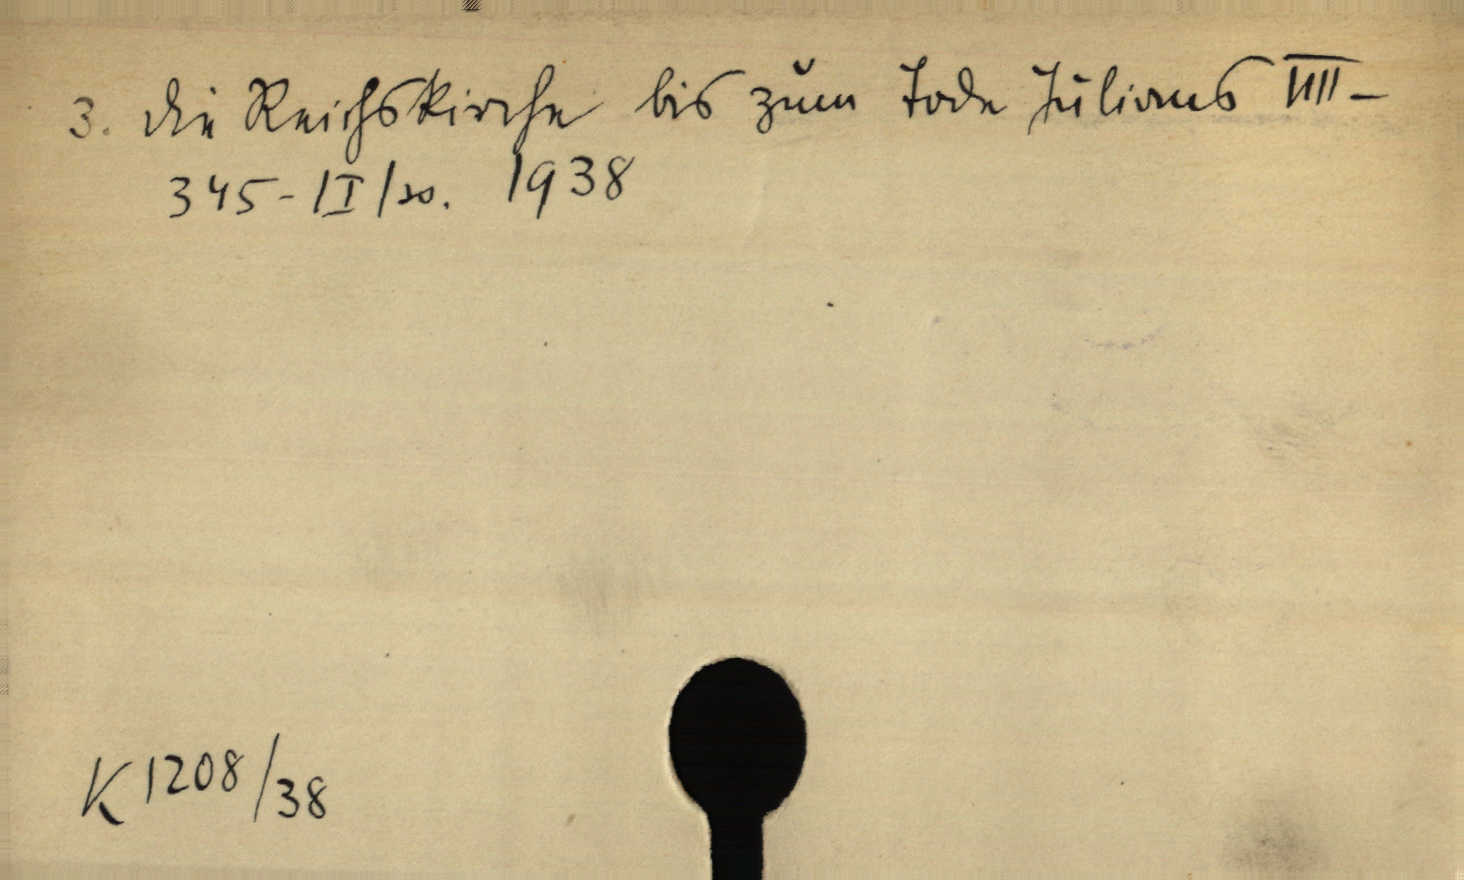 3. Die Reichskirche bis zum Tode Julians IIII-
345-|I|20. 1938
K 1208/38